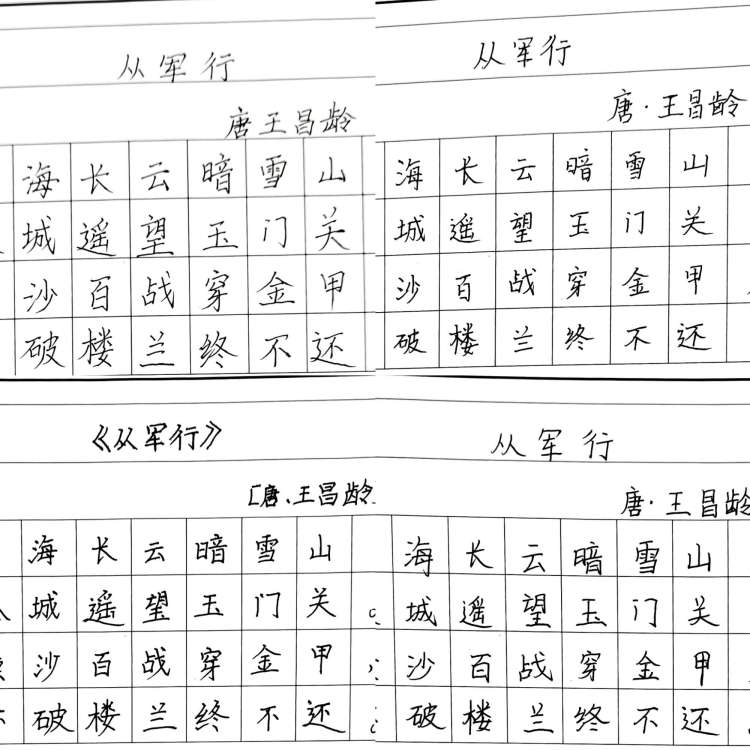 从军行
唐王昌龄
海长云暗雪山
城遥望玉门关
沙百战穿金甲
破楼兰终不还
从军行
唐·王昌龄
海长云暗雪山
城遥望玉门关
沙百战穿金甲
破楼兰终不还
《从军行》
[唐、王昌龄
海长云暗雪山
城遥望玉门关
沙百战穿金甲
破楼兰终不还
从军行
唐·王昌龄
海长云暗雪山
城遥望玉门关
沙百战穿金甲
破楼兰终不还